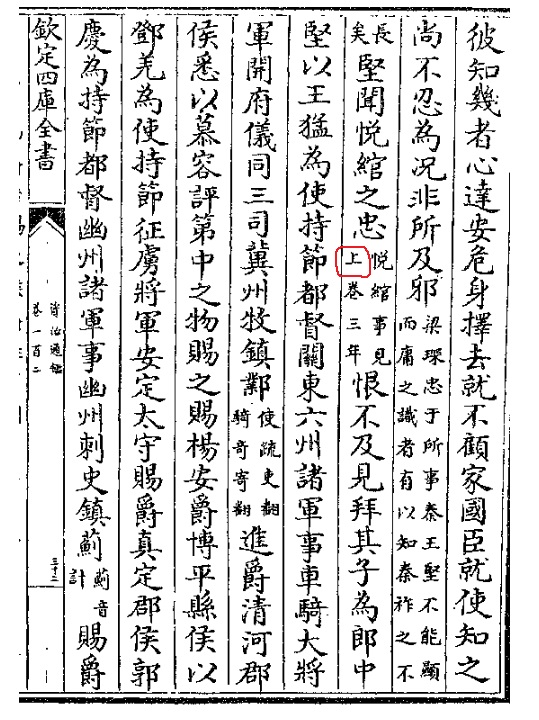 彼知幾者心達安危身擇去就不顧家國臣就使知之
尚不忍為况非所及邪梁琛忠于所事秦王堅不能顯而庸之識者有以知秦祚之不
長矣堅聞悦綰之忠悦綰事見上卷三年恨不及見拜其子為郎中
堅以王猛為使持節都督關東六州諸軍事車騎大將
軍開府儀同三司冀州牧鎮鄴使疏吏翻騎奇寄翻進爵清河郡
侯悉以慕容評第中之物賜之賜楊安爵博平縣侯以
鄧羌為使持節征虜將軍安定太守賜爵真定郡侯郭
慶為持節都督幽州諸軍事幽州刺史鎮薊薊音計賜爵
欽定四庫全書
資治通鑑
卷一百二
三十二